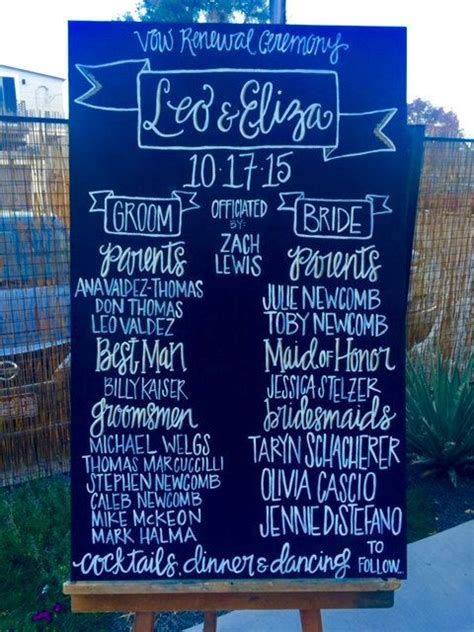 Vow Renewal Ceremony
Leo & Eliza
10·17·15
GROOM
OFFICIATED
BY:
ZACH
LEWIS
BRIDE
parents
ANA VALDEZ-THOMAS
DON THOMAS
LEO VALDEZ
BEST MAN
BILLY KAISER
groomsmen
MICHAEL WELGS
THOMAS MARCUCCILLI
STEPHEN NEWCOMB
CALEB NEWCOMB
MIKE McKEON
MARK HALMA
parents
JULIE NEWCOMB
TOBY NEWCOMB
Maid of Honor
JESSICA STELZER
bridesmaids
TARYN SCHACHERER
OLIVIA CASCIO
JENNIE DiSTEFANO
cocktails, dinner & dancing TO
FOLLOW...